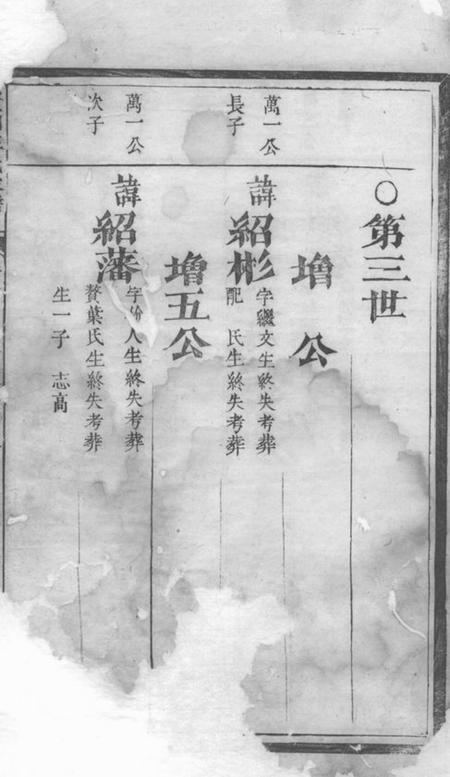 ○第三世
增 公
萬一公
長子
諱紹彬
字繼文生終失考葬
配 氏生終失考葬
增五公
萬一公
次子
諱紹藩
字 人生終失考葬
贅葉氏生終失考葬
生一子 志高